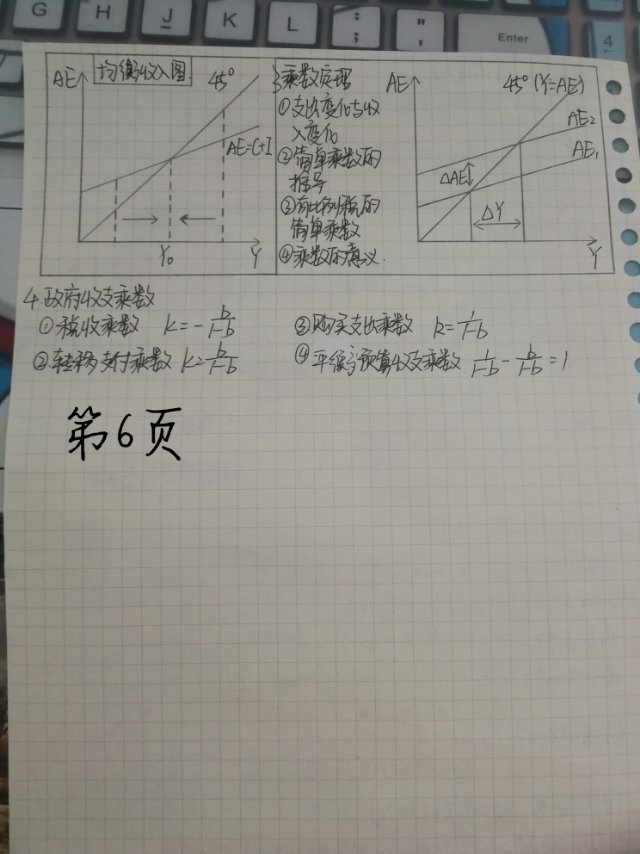 G H J K L : ; " ' Enter 4
AE 均衡收入图 45°
AE=C+I
Y₀ Y
3 乘数定理
①支出变化与收
入变化
②简单乘数的
推导
③有比例税的
简单乘数
④乘数的意义.
AE 45° (Y=AE)
AE₂
AE₁
ΔAE
ΔY
Y
4.政府收支乘数
①税收乘数 K=-b/1-b ③购买支出乘数 K=1/1-b
②转移支付乘数 K=b/1-b ④平衡预算收支乘数 1/1-b - b/1-b =1
第6页